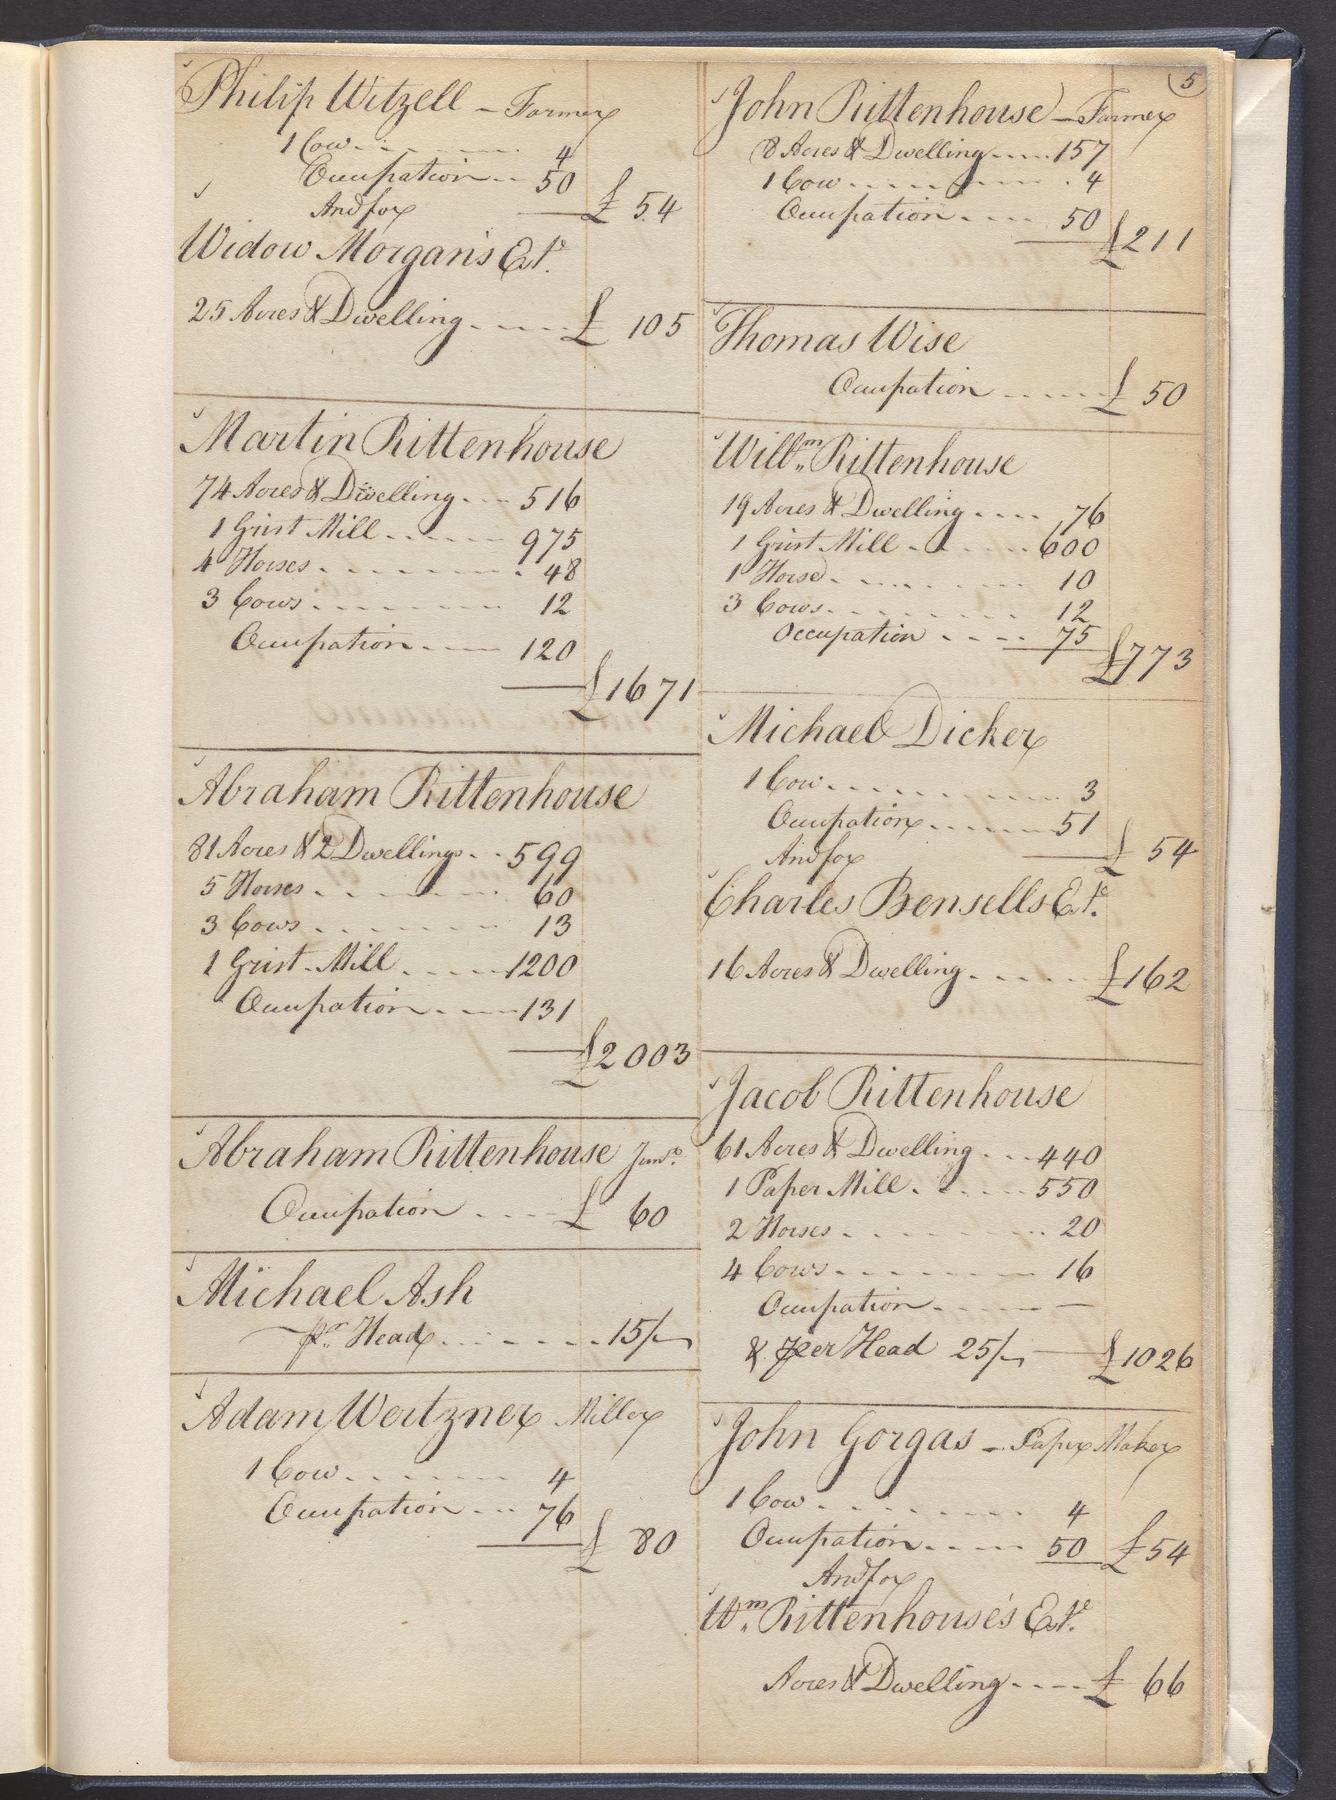 5
Philip Witzell - Farmer
1 Cow 4
Occupation 50
£ 54
And for
Widow Morgan's Est.e
25 Acres & Dwelling £ 105
Martin Rittenhouse
74 Acres & Dwelling 516
1 Grist Mill 975
4 Horses 48
3 Cows 12
Occupation 120
£1671
Abraham Rittenhouse
81 Acres & 2 Dwellings 599
5 Horses 60
3 Cows 13
1 Grist Mill 1200
Occupation 131
£2003
Abraham Rittenhouse Junr.
Occupation £ 60
Michael Ash
pr. Head 15/-
Adam Wertzner Miller
1 Cow 4
Occupation 76
£ 80
John Rittenhouse - Farmer
8 Acres & Dwelling 157
1 Cow 4
Occupation 50
£211
Thomas Wise
Occupation £ 50
Willm. Rittenhouse
19 Acres & Dwelling 76
1 Grist Mill 600
1 Horse 10
3 Cows 12
Occupation 75
£773
Michael Dicker
1 Cow 3
Occupation 51
£ 54
And for
Charles Bensells Est.e
16 Acres & Dwelling £162
Jacob Rittenhouse
61 Acres & Dwelling 440
1 Paper Mill 550
2 Horses 20
4 Cows 16
Occupation —
& per Head 25/- £1026
John Gorgas - Paper Maker
1 Cow 4
Occupation 50 £54
And for
Wm. Rittenhouse's Est.e
Acres & Dwelling £ 66